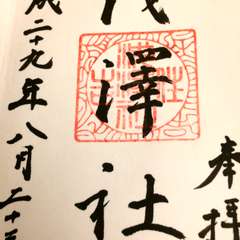 奉拝
澤社
成二十九年八月二十